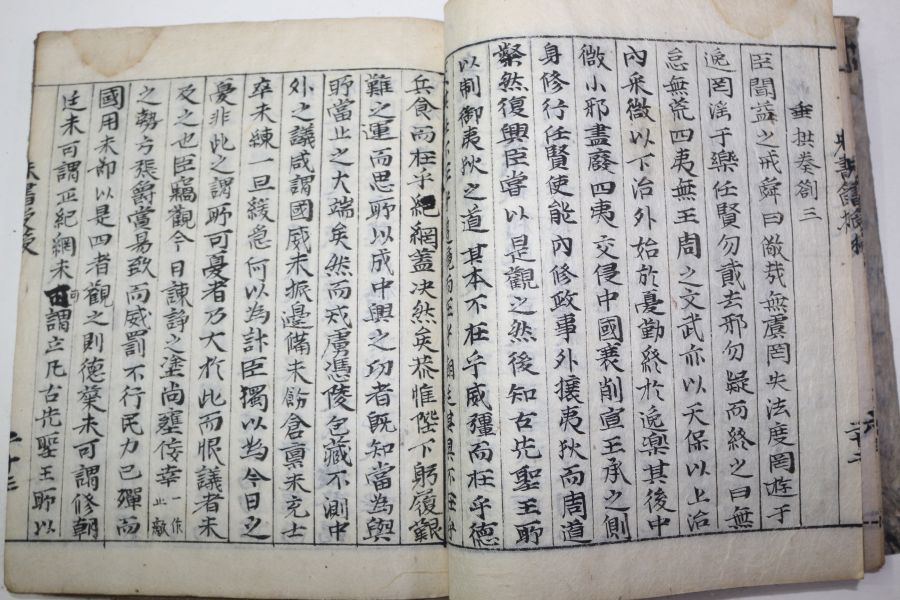 垂拱奏劄三
臣聞益之戒舜曰敬哉無虞罔失法度罔遊于
逸罔淫于樂任賢勿貳去邪勿疑而終之曰無
怠無荒四夷無王周之文武亦以天保以上治
內采微以下治外始於憂勤終於逸樂其後中
微小邪盡廢四夷交侵中國衰削宣王承之側
身修行任賢使能內修政事外攘夷狄而周道
粲然復興臣嘗以是觀之然後知古先聖王所
以制御夷狄之道其本不在乎威彊而在乎德
兵食而在乎紀網盖决然矣恭惟陛下躬履艱
難之運而思所以成中興之功者旣知當為與
所當止之大端矣然而戎虜憑陵包藏不測中
外之議咸謂國威未振邊備未飭倉廩未充士
卒未練一旦緩急何以為計臣獨以為今日之
憂非此之謂所可憂者乃大於此而恨議者未
及之也臣竊觀今日諫諍之塗尚壅佞幸一作止敵
之勢方張爵賞易致而威罰不行民力已殫而
國用未節以是四者觀之則德業未可謂修朝
廷未可謂正紀網未可謂立凡古先聖王所以
二十三